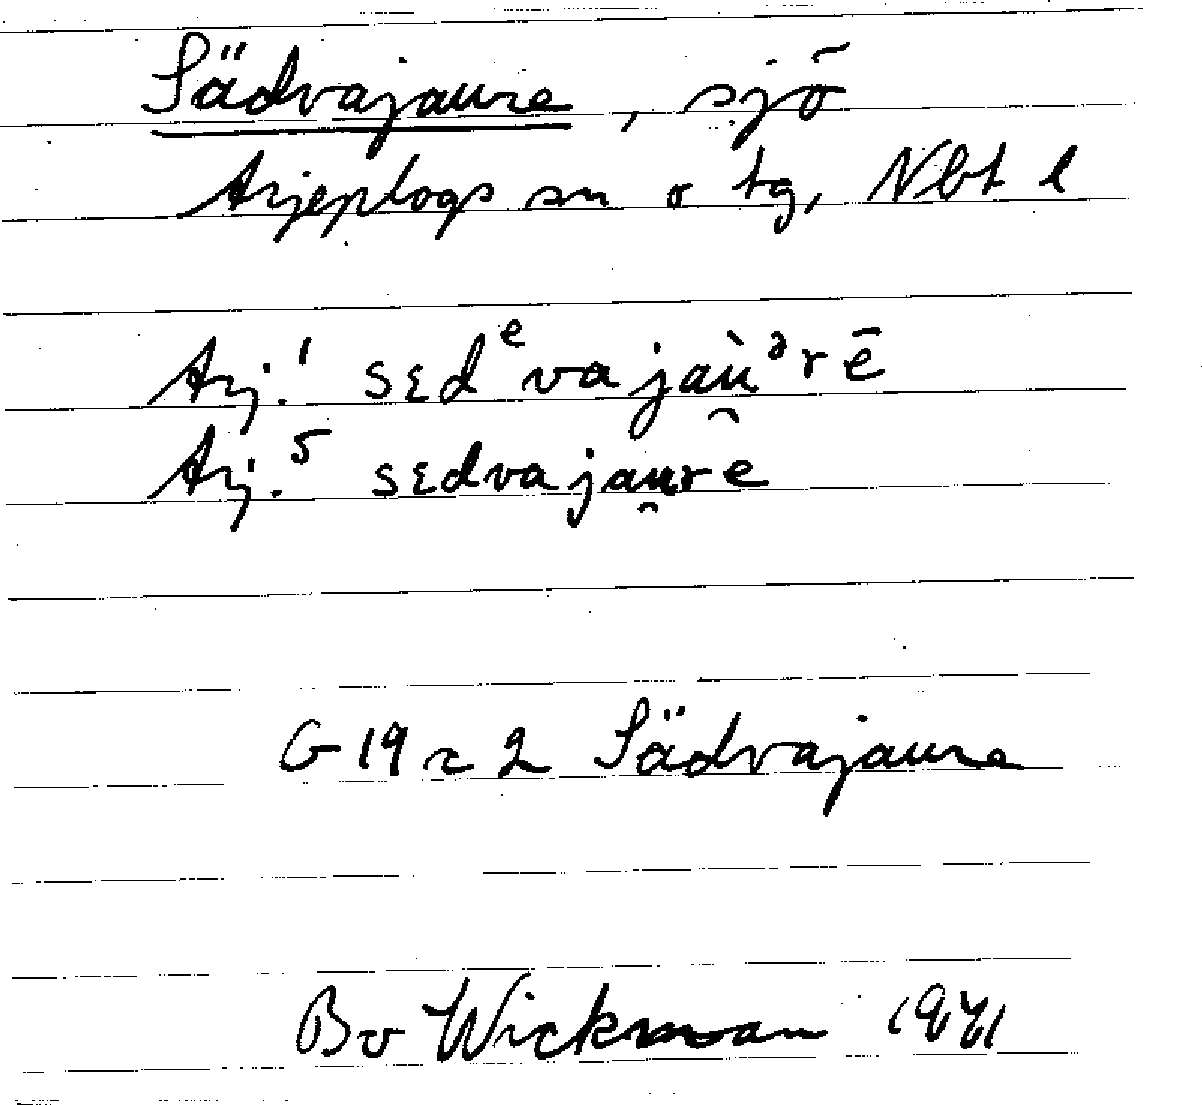 Sädvajaure, sjö
Arjeplogs sn o tg, Nbt l
Arj.¹ sɛdᵉvajaù̯ᵊrē
Arj.⁵ sɛdvajau̯rē̂
G 19 r 2 Sädvajaure
Bo Wickman 1971